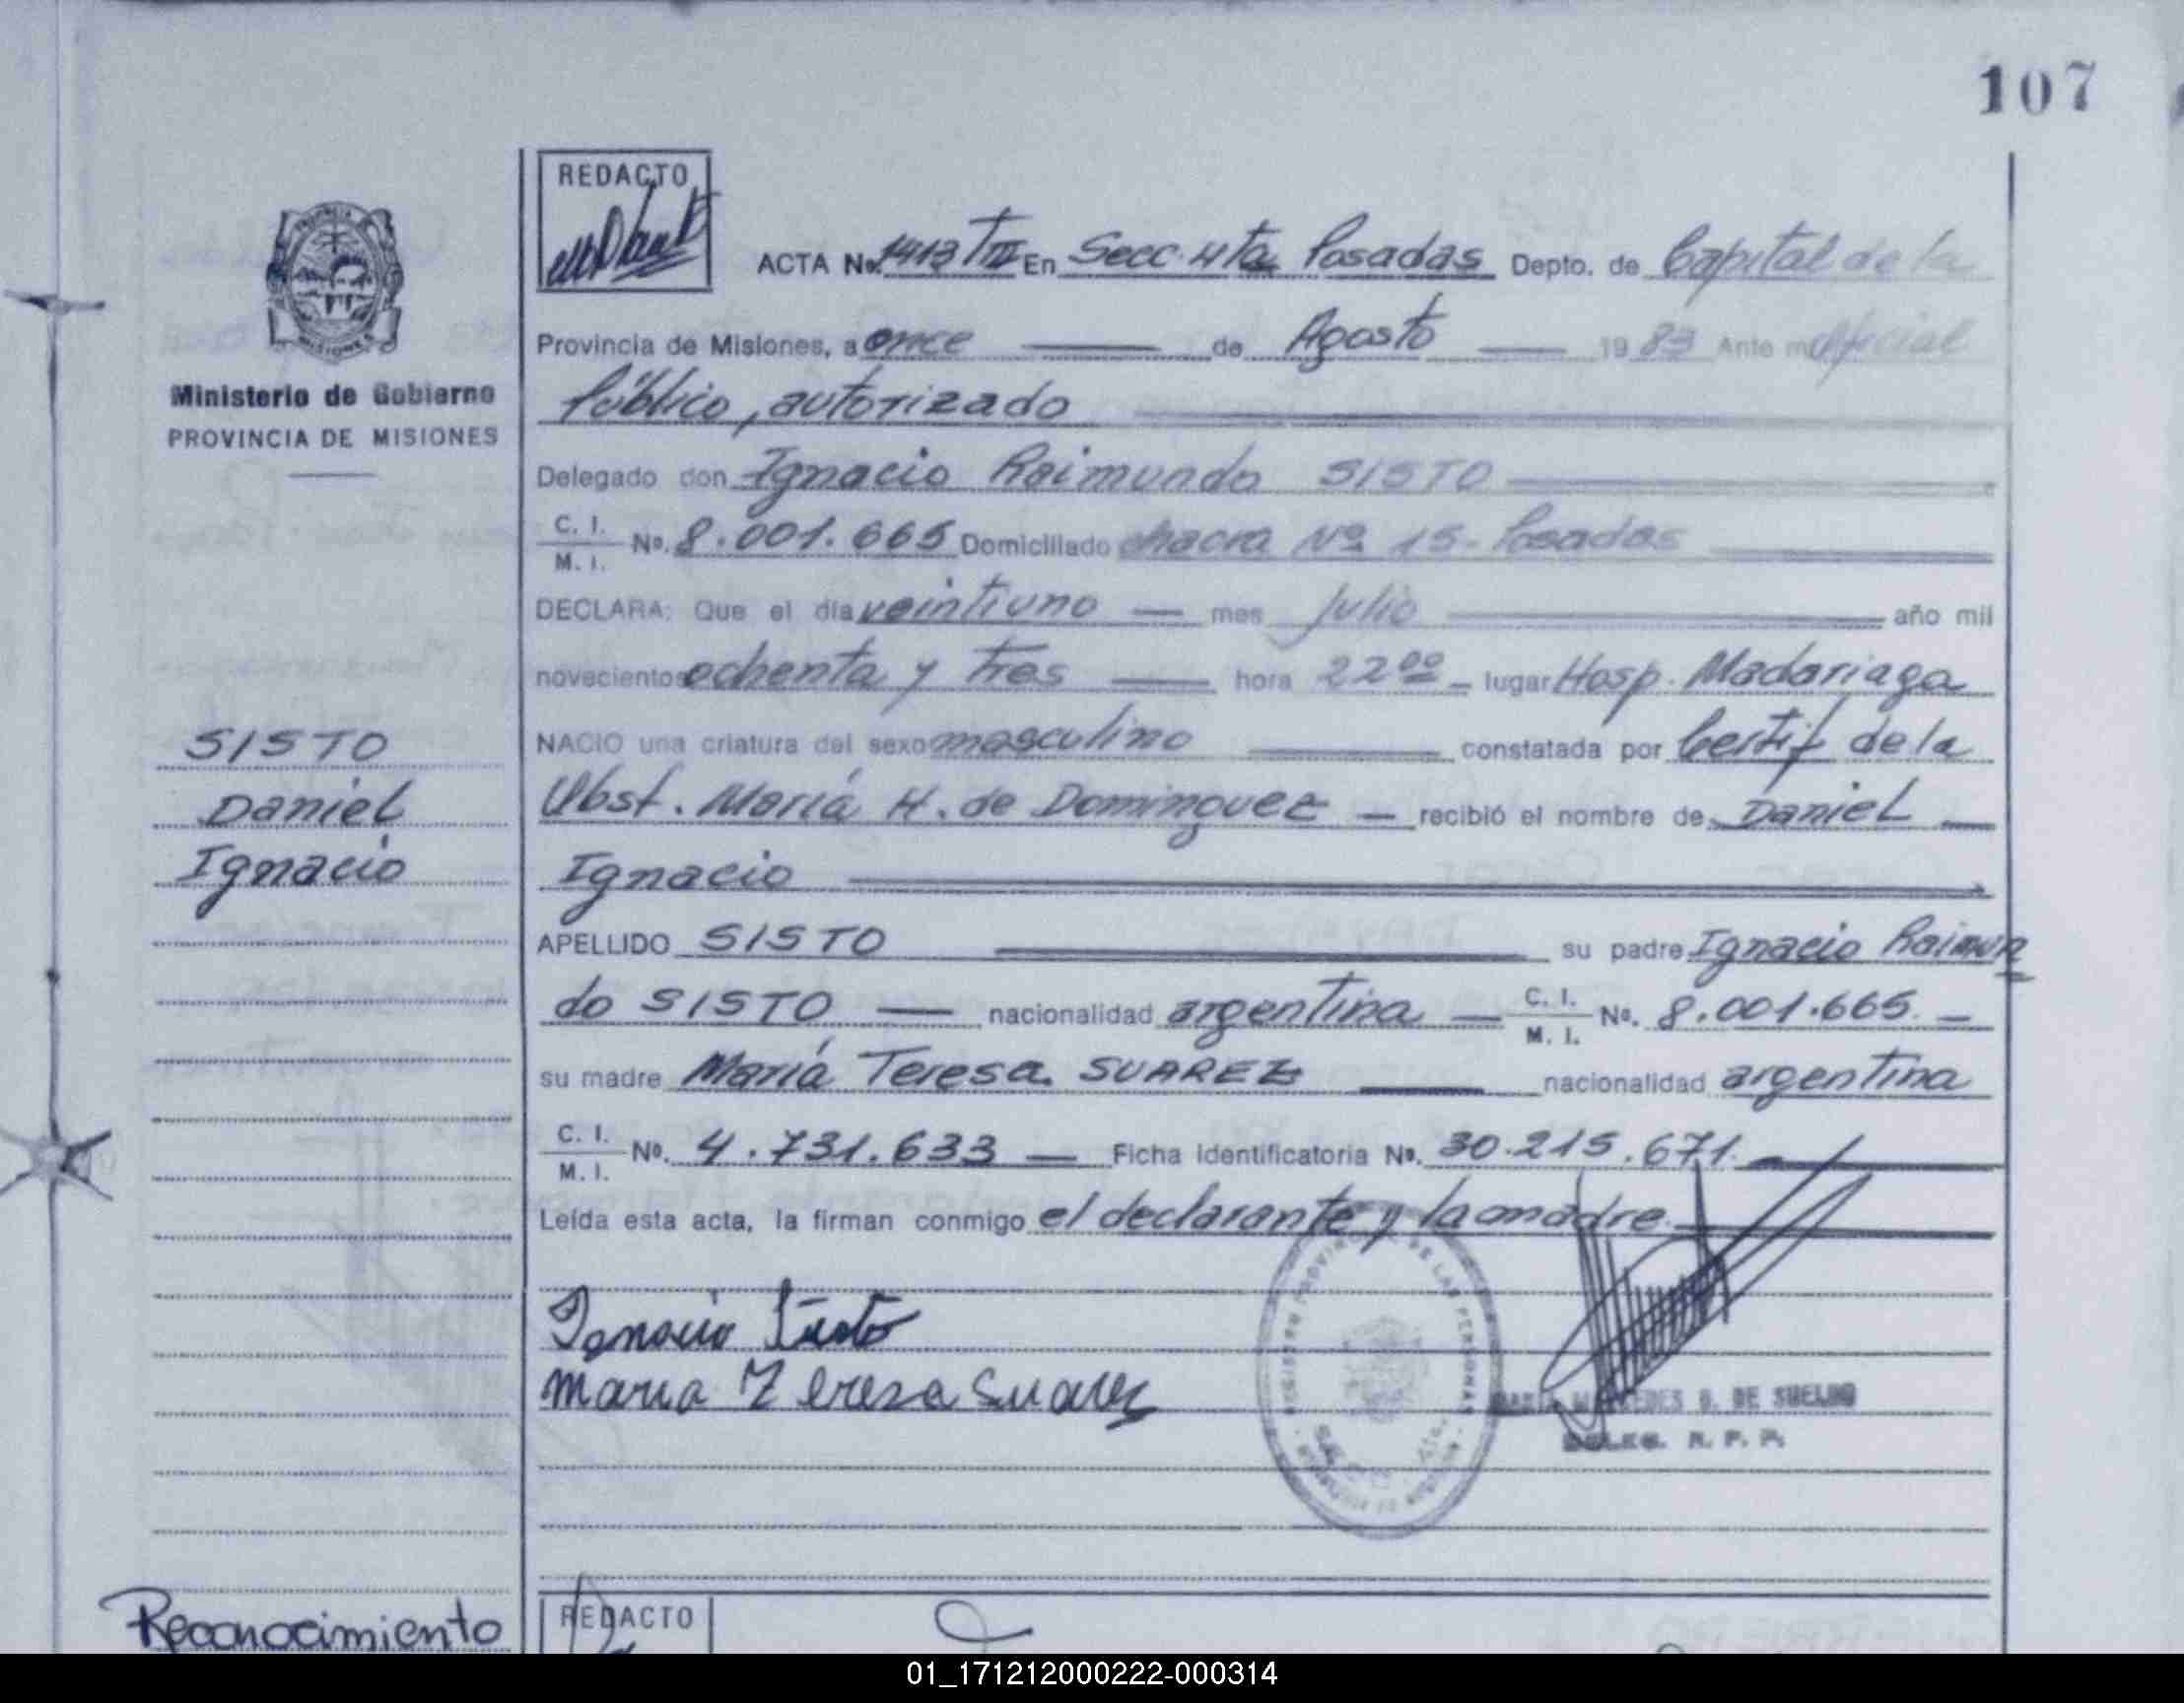 107
REDACTO
ACTA No. 1413 T III En Secc. 4ta Posadas Depto. de Capital de la
Provincia de Misiones, a once de Agosto 1983 Ante mi Oficial
Público, autorizado
Delegado don Ignacio Raimundo SISTO
C. I. / M. I. No. 8.001.665 Domiciliado chacra Nº 15 - Posadas
DECLARA: Que el día veintiuno mes Julio año mil
novecientos ochenta y tres hora 22⁰⁰ lugar Hosp. Madariaga
NACIO una criatura del sexo masculino constatada por Certif de la
Obst. María H. de Dominguez recibió el nombre de Daniel
Ignacio
APELLIDO SISTO su padre Ignacio Raimun
do SISTO nacionalidad argentina C. I. / M. I. No. 8.001.665.
su madre María Teresa SUAREZ nacionalidad argentina
C. I. / M. I. No. 4.731.633 Ficha identificatoria No. 30.215.671.
Leída esta acta, la firman conmigo el declarante y la madre
Ignacio Sisto
Maria Teresa Suarez
REGISTRO PROVINCIAL DE LAS PERSONAS
DE SUELDO
DELEG. R. P. P.
Ministerio de Gobierno
PROVINCIA DE MISIONES
SISTO
Daniel
Ignacio
Reconocimiento
REDACTO
01_171212000222-000314